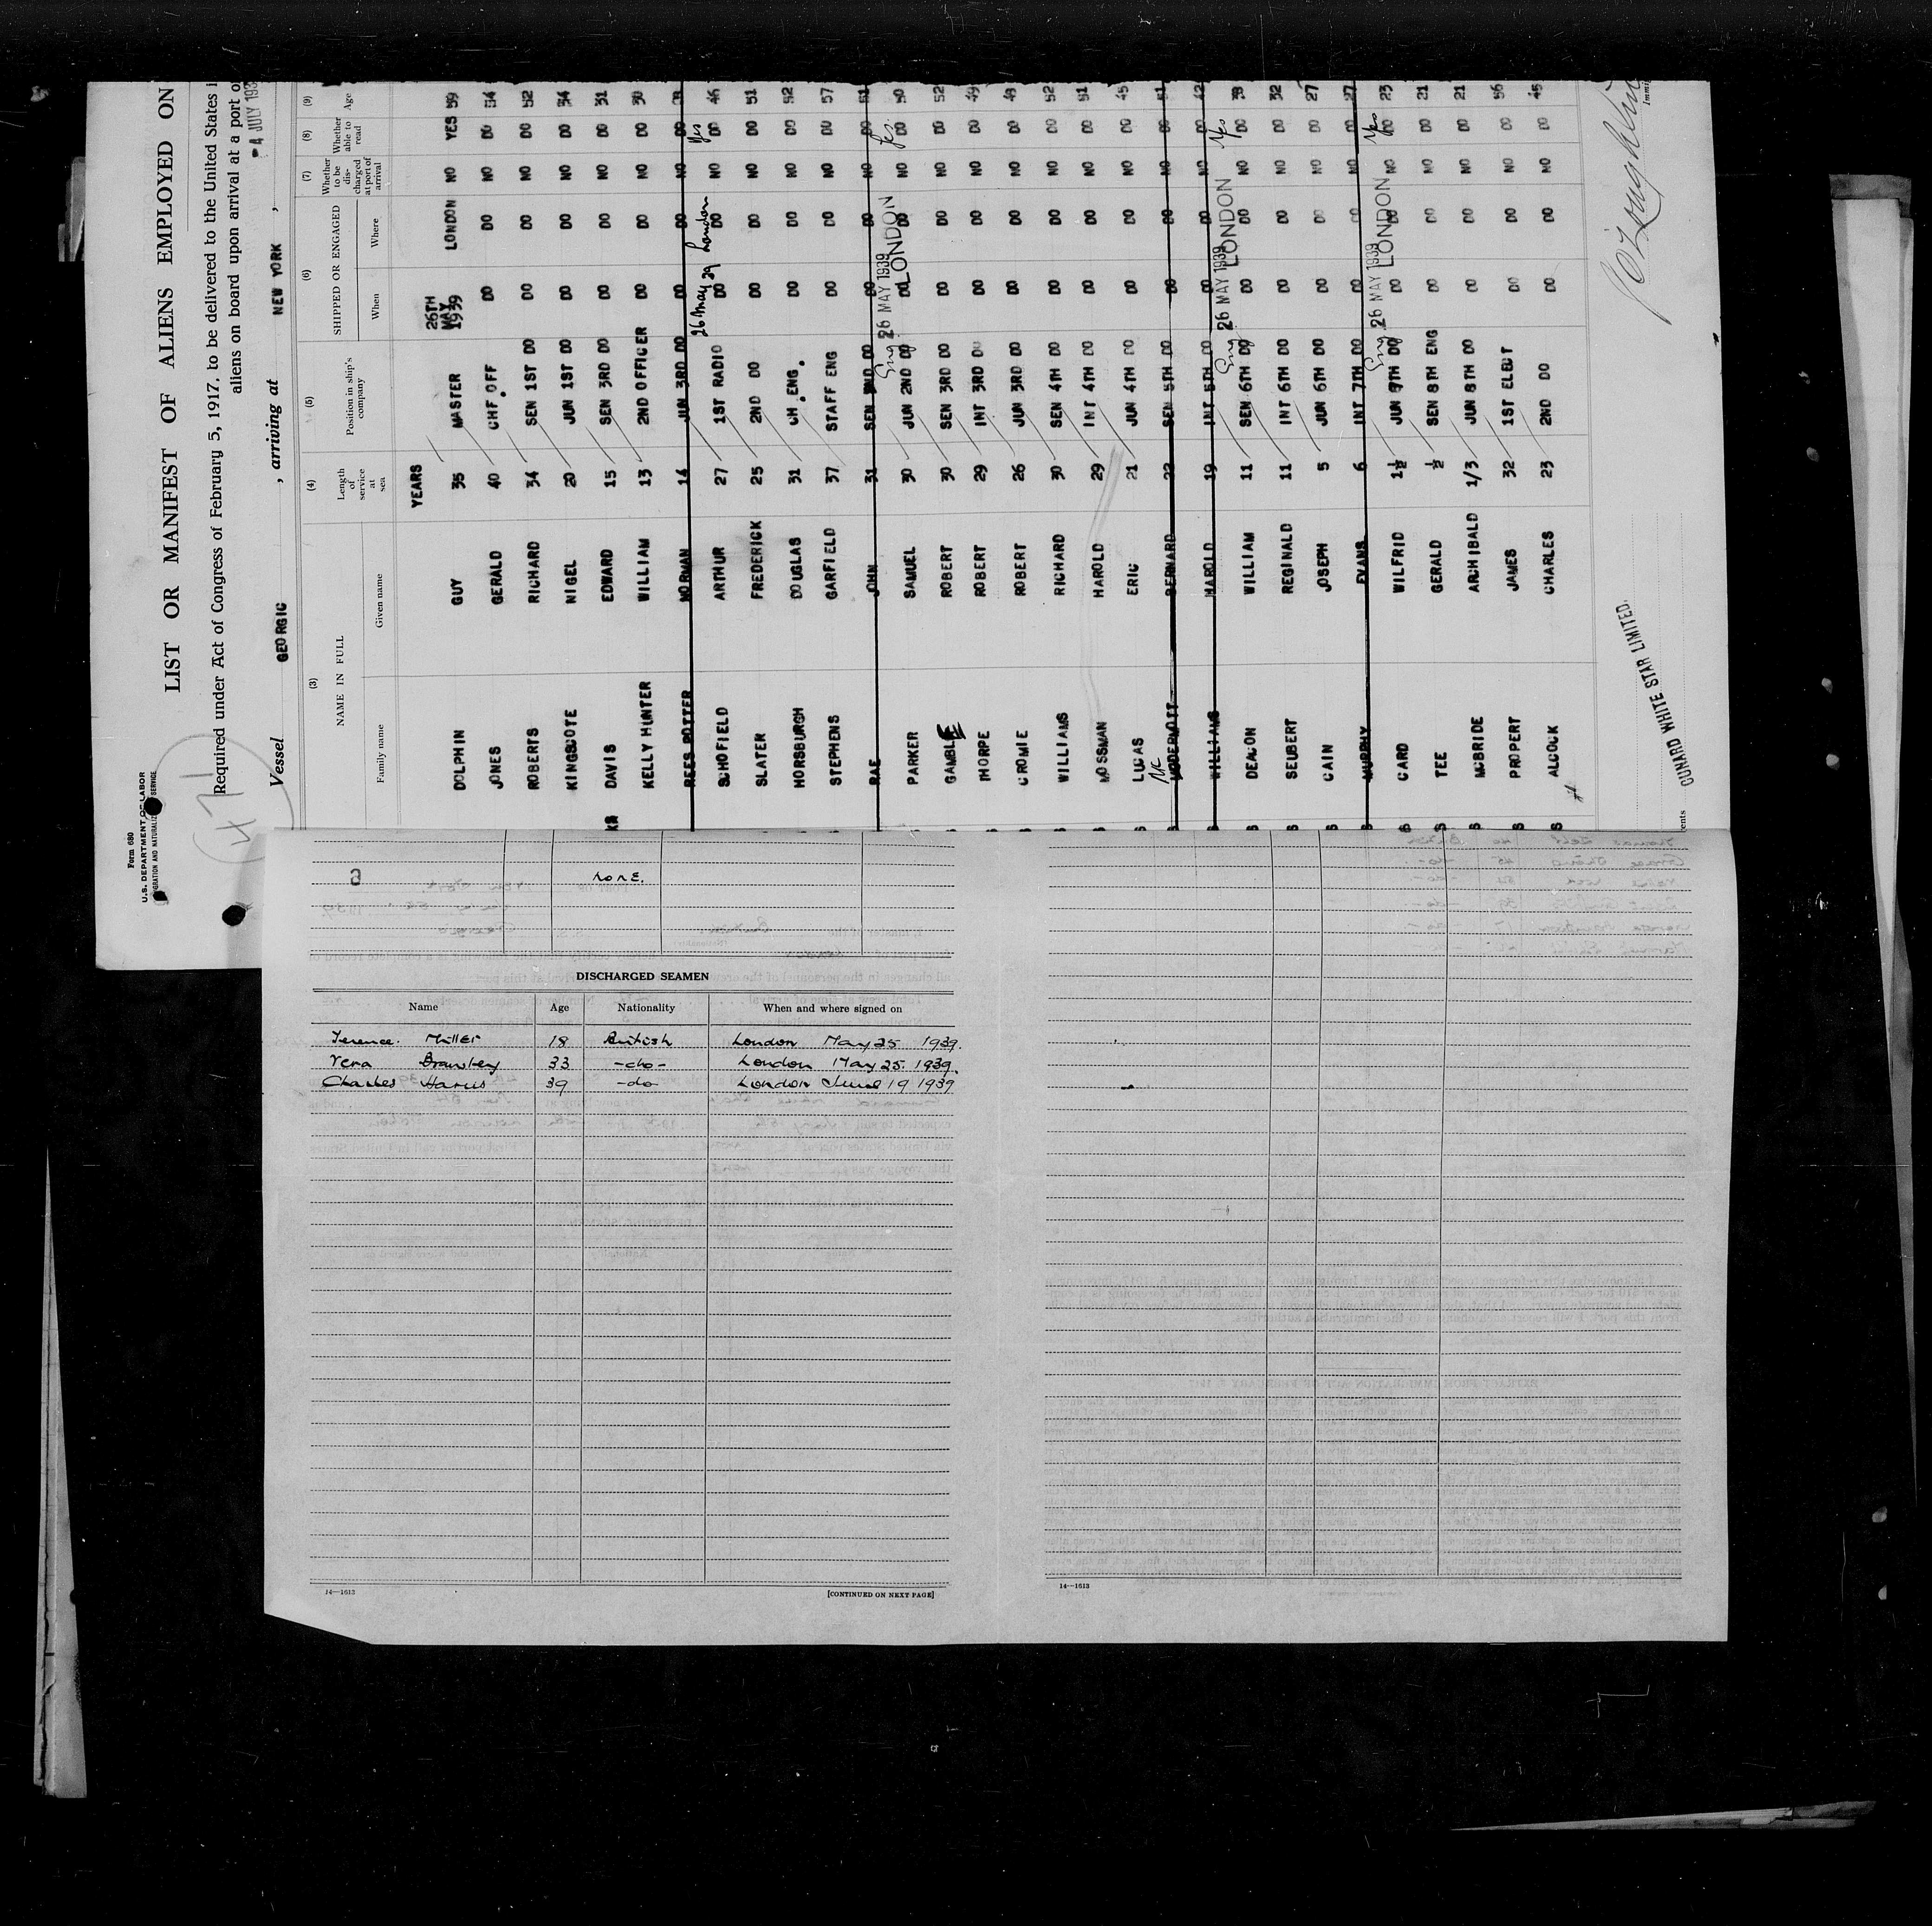 Form 680
U.S. DEPARTMENT OF LABOR
LIST OR MANIFEST OF ALIENS EMPLOYED ON
Required under Act of Congress of February 5, 1917, to be delivered to the United States
aliens on board upon arrival at a port of
Vessel GEORGIC , arriving at NEW YORK , 4 JULY 193
(3) (4) (5) (6) (7) (8) (9)
NAME IN FULL Length of service at sea Position in ship's company SHIPPED OR ENGAGED Whether to be discharged at port of arrival Whether able to read Age
Family name Given name When Where
YEARS
DOLPHIN GUY 35 MASTER 26TH MAY 1939 LONDON NO YES 59
JONES GERALD 40 CHF.OFF DO DO NO DO 54
ROBERTS RICHARD 34 SEN 1ST DO DO DO NO DO 52
KINGSCOTE NIGEL 20 JUN 1ST DO DO DO NO DO 34
DAVIS EDWARD 15 SEN 3RD DO DO DO NO DO 31
KELLY HUNTER WILLIAM 13 2ND OFFICER DO DO NO DO 30
REES POTTER NORMAN 14 JUN 3RD DO DO DO NO DO
26 May 39 London Yes
SCHOFIELD ARTHUR 27 1ST RADIO DO DO NO DO 46
SLATER FREDERICK 25 2ND DO DO DO NO DO 51
HORSBURGH DOUGLAS 31 CH.ENG. DO DO NO DO 52
STEPHENS GARFIELD 37 STAFF ENG DO DO NO DO 57
RAE JOHN 31 SEN 2ND DO DO DO NO DO 51
Eng 26 MAY 1939 LONDON Yes
PARKER SAMUEL 30 JUN 2ND DO DO DO NO DO 50
GAMBLE ROBERT 30 SEN 3RD DO DO DO NO DO 52
THORPE ROBERT 29 INT 3RD DO DO DO NO DO 49
CROMIE ROBERT 26 JUN 3RD DO DO DO NO DO 48
WILLIAMS RICHARD 30 SEN 4TH DO DO DO NO DO 52
MOSSMAN HAROLD 29 INT 4TH DO DO DO NO DO 51
LUCAS ERIC 21 JUN 4TH DO DO DO NO DO 45
Mc
MODERMOTT BERNARD 22 SEN 5TH DO DO DO NO DO 51
WILLIAMS HAROLD 19 INT 5TH DO DO DO NO DO 42
Eng 26 MAY 1939 LONDON Yes
DEACON WILLIAM 11 SEN 6TH DO DO DO NO DO 39
SEUBERT REGINALD 11 INT 6TH DO DO DO NO DO 32
CAIN JOSEPH 5 JUN 6TH DO DO DO NO DO 27
MURPHY EVANS 6 INT 7TH DO DO DO NO DO 27
Eng 26 MAY 1939 LONDON Yes
CARD WILFRID 1½ JUN 7TH DO DO DO NO DO 23
TEE GERALD ½ SEN 8TH ENG DO DO NO DO 21
MCBRIDE ARCHIBALD 1/3 JUN 8TH DO DO DO NO DO 21
PROPERT JAMES 32 1ST ELECT DO DO NO DO 56
ALCOCK CHARLES 23 2ND DO DO DO NO DO 45
CUNARD WHITE STAR LIMITED.
NONE.
DISCHARGED SEAMEN
Name Age Nationality When and where signed on
Terence. Miller 18 British London May 25 1939.
Vera Bransbey 33 -do- London May 25. 1939.
Charles Harris 39 -do- London June 19 1939
14—1613 [CONTINUED ON NEXT PAGE]
14—1613